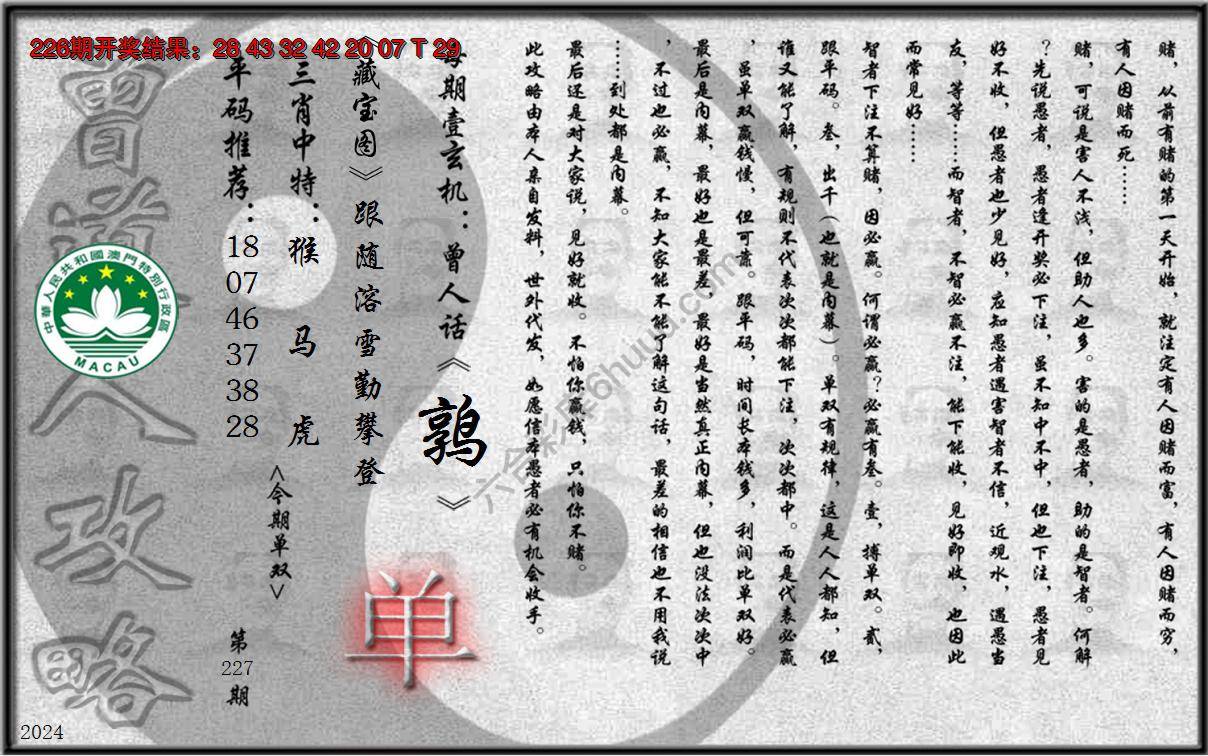 226期开奖结果：28 43 32 42 20 07 T 29
赌，从前有赌的第一天开始，就注定有人因赌而富，有人因赌而穷，
有人因赌而死……
赌，可说是害人不浅，但助人也多。害的是愚者，助的是智者。何解
？先说愚者，愚者逢开奖必下注，虽不知中不中，但也下注，愚者见
好不收，但愚者也少见好，应知愚者遇害智者不信，近观水，遇愚当
友，等等……而智者，不智必赢不注，能下能收，见好即收，也因此
而常见好……
智者下注不算赌，因必赢。何谓必赢？必赢有叁。壹，搏单双。贰，
跟平码。叁，出千（也就是内幕）。单双有规律，这是人人都知，但
谁又能了解，有规则不代表次次都能下注，次次都中。而是代表必赢
，虽单双赢钱慢，但可靠。跟平码，时间长本钱多，利润比单双好。
最后是内幕，最好也是最差，最好是当然真正内幕，但也没法次次中
，不过也必赢，不知大家能不能了解这句话，最差的相信也不用我说
……到处都是内幕。
最后还是对大家说，见好就收。不怕你赢钱，只怕你不赌。
此攻略由本人亲自发料，世外代发，如愿信本愚者必有机会收手。
每期壹玄机：曾人话《鹑》
《藏宝图》跟随溶雪勤攀登
三肖中特：猴 马 虎
平码推荐：18 07 46 37 38 28
<今期单双>
单
第
227
期
曾道人攻略
中華人民共和國澳門特別行政區
MACAU
2024